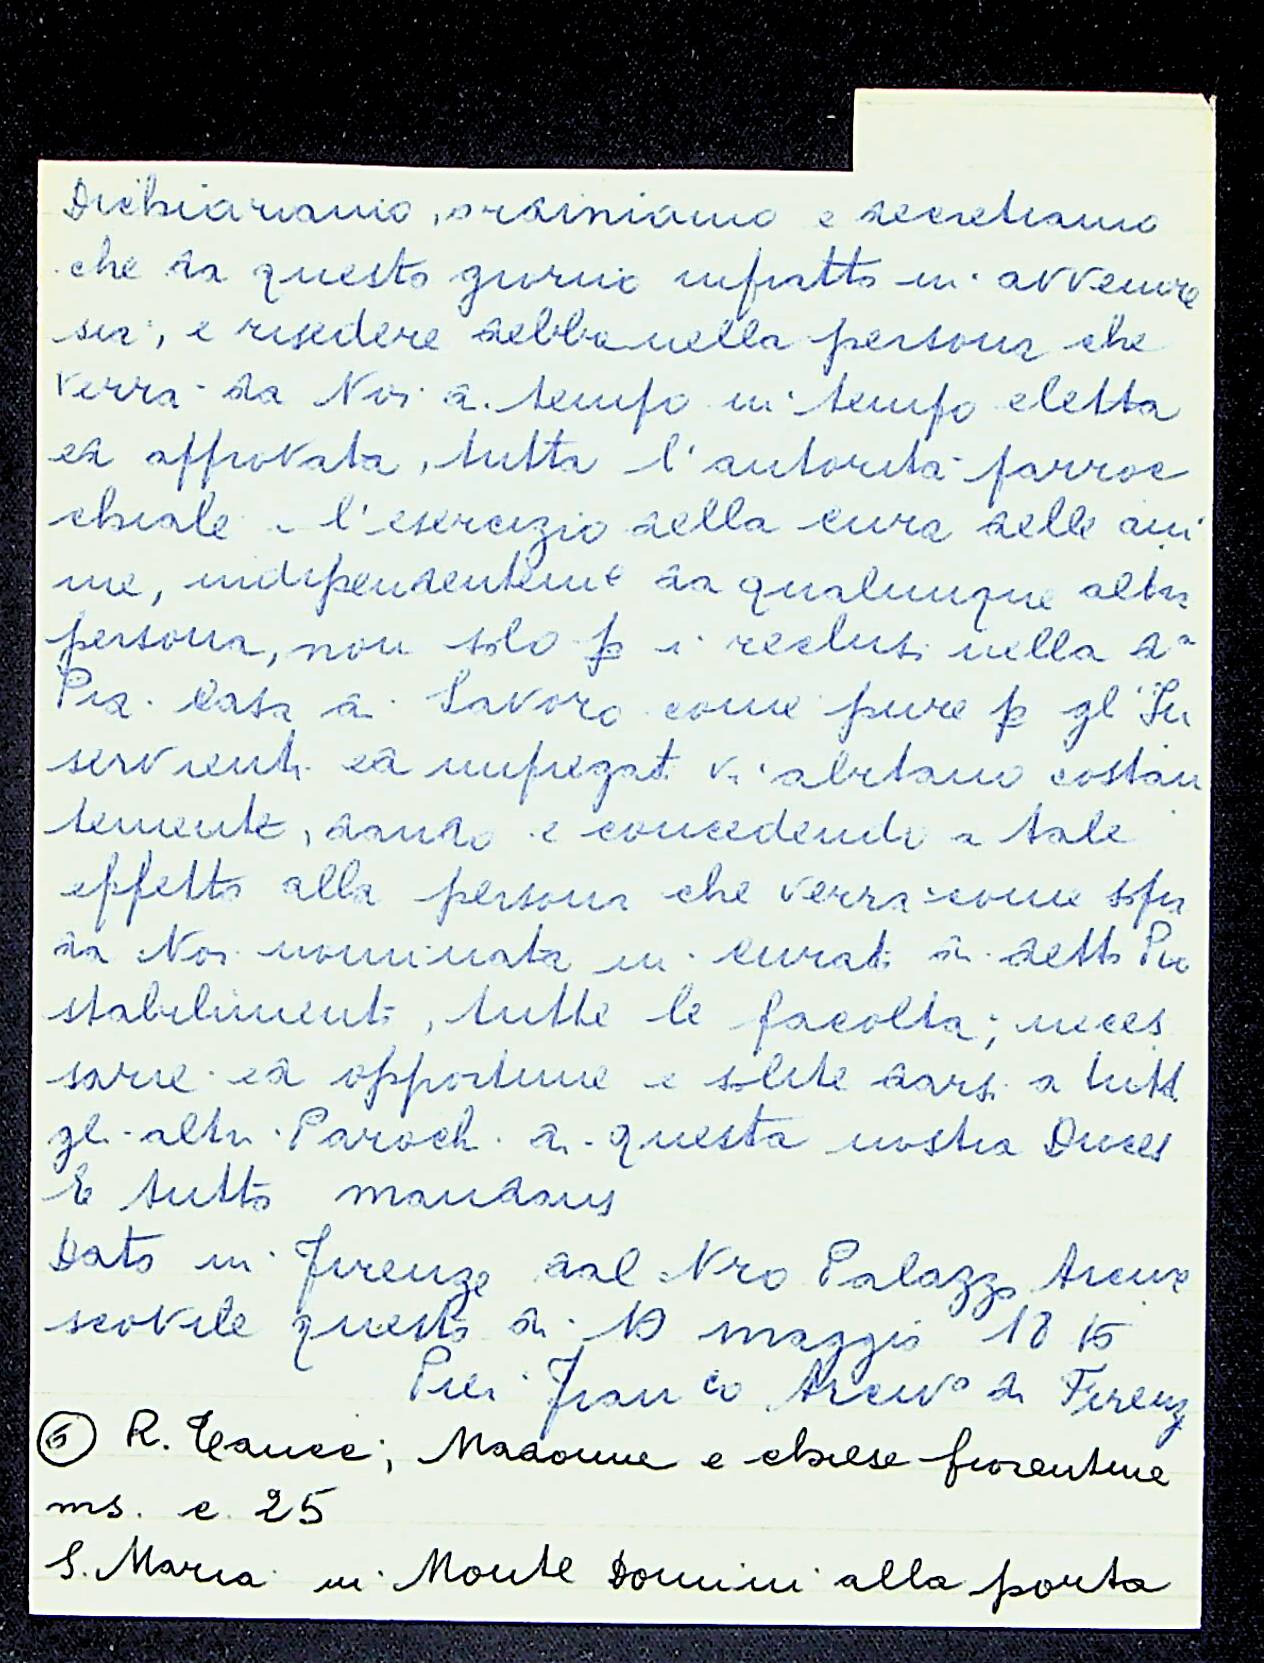 Dichiariamo, ordiniamo e decretiamo
che da questo giorno infratto in avvenire
sia, e risedere debba nella persona che
verrà da Noi di tempo in tempo eletta
ed approvata, tutta l'autorità parroc
chiale e l'esercizio della cura delle ani
me, independenteme da qualunque altra
persona, non solo p i reclusi nella da
Pia Casa di Lavoro come pure p gl'In
servienti ed impiegati vi abitano costan
temente, dando e concedendo a tale
effetto alla persona che verrà come sopra
da Noi nominata in curato di detto Pio
stabilimento, tutte le facoltà; neces
sarie ed opportune e solite darsi a tutti
gli altri Parochi di questa nostra Dioces
E tutto mandans
Dato in Firenze dal Nro Palazzo Arcive
scovile questo di 19 maggio 1815
Pier Franco Arcivo di Firenz
⑤ R. Tauci; Madonne e chiese fiorentine
ms. c. 25
S. Maria in Monte Domini alla porta